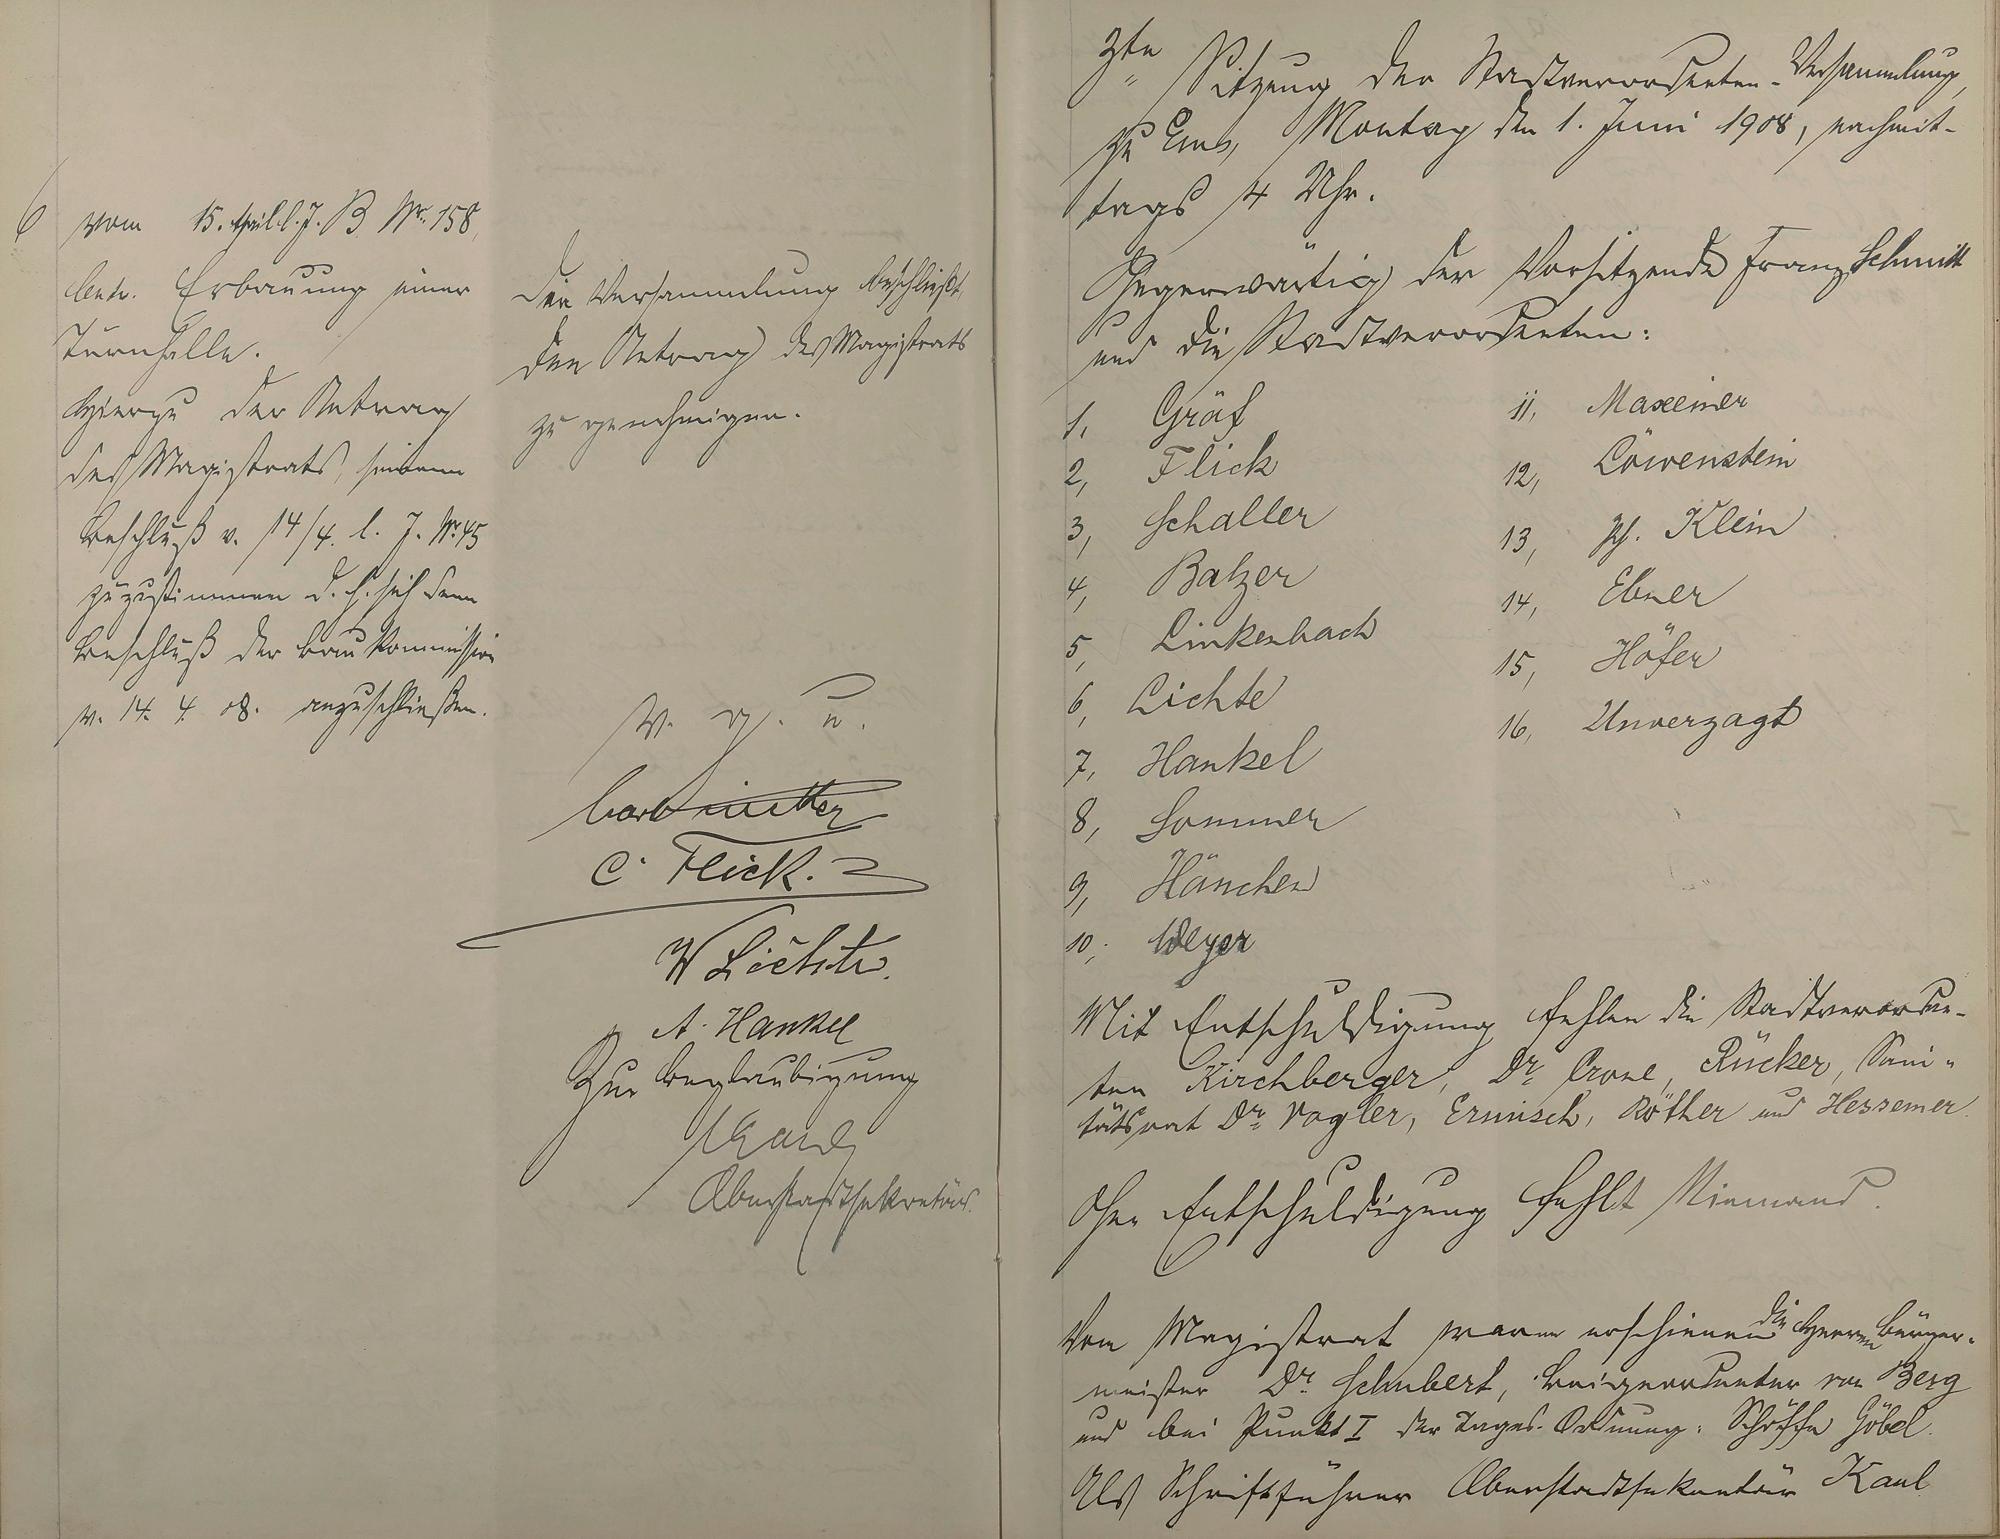 vom 15. April l. J. B. Nr. 158,
betr. Erbauung einer
Turnhalle.
Hierzu der Antrag
des Magistrats, seinem
Beschluß v. 14/4. l. J. Nr. 45
zuzustimmen d. h. sich dem
Beschluß der Baukommission
v. 14. 4. 08. anzuschließen.
Die Versammlung beschließt,
den Antrag des Magistrats
zu genehmigen.
v. g. u.
C. Flick.
W Lichte.
A. Hankel
Zur Beglaubigung
Kaul
Oberstadtsekretär.
3te Sitzung der Stadtverordneten-Versammlung,
zu Ems, Montag den 1. Juni 1908, nachmit-
tags 4 Uhr.
Gegenwärtig der Vorsitzende Franz Schmitt
und die Stadtverordneten:
1, Gräf
2, Flick
3, Schaller
4, Balzer
5, Linkenbach
6, Lichte
7, Hankel
8, Sommer
9, Hänchen
10, Weyer
11, Maxeiner
12, Löwenstein
13, Ph. Klein
14, Ebner
15, Höfer
16, Unverzagt
Mit Entschuldigung fehlen die Stadtverordne-
ten Kirchberger, Dr. Crone, Rücker, Sani-
tätsrat Dr. Vogler, Ermisch, Röther und Hessemer.
Ohne Entschuldigung fehlt Niemand.
Vom Magistrat waren erschienen die Herren Bürger-
meister Dr. Schubert, Beigeordneter von Berg
und bei Punkt I der Tages-Ordnung: Schöffe Göbel.
Als Schriftführer Oberstadtsekretär Kaul